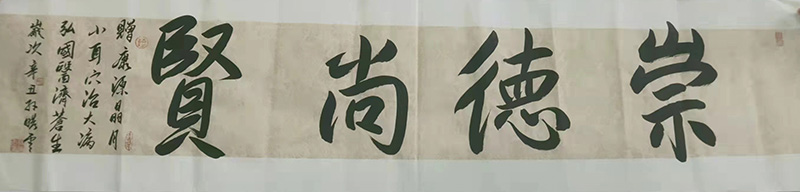 崇德尚賢
贈康源日月明
小耳穴治大病
弘國醫濟蒼生
歲次辛丑孫曉雲